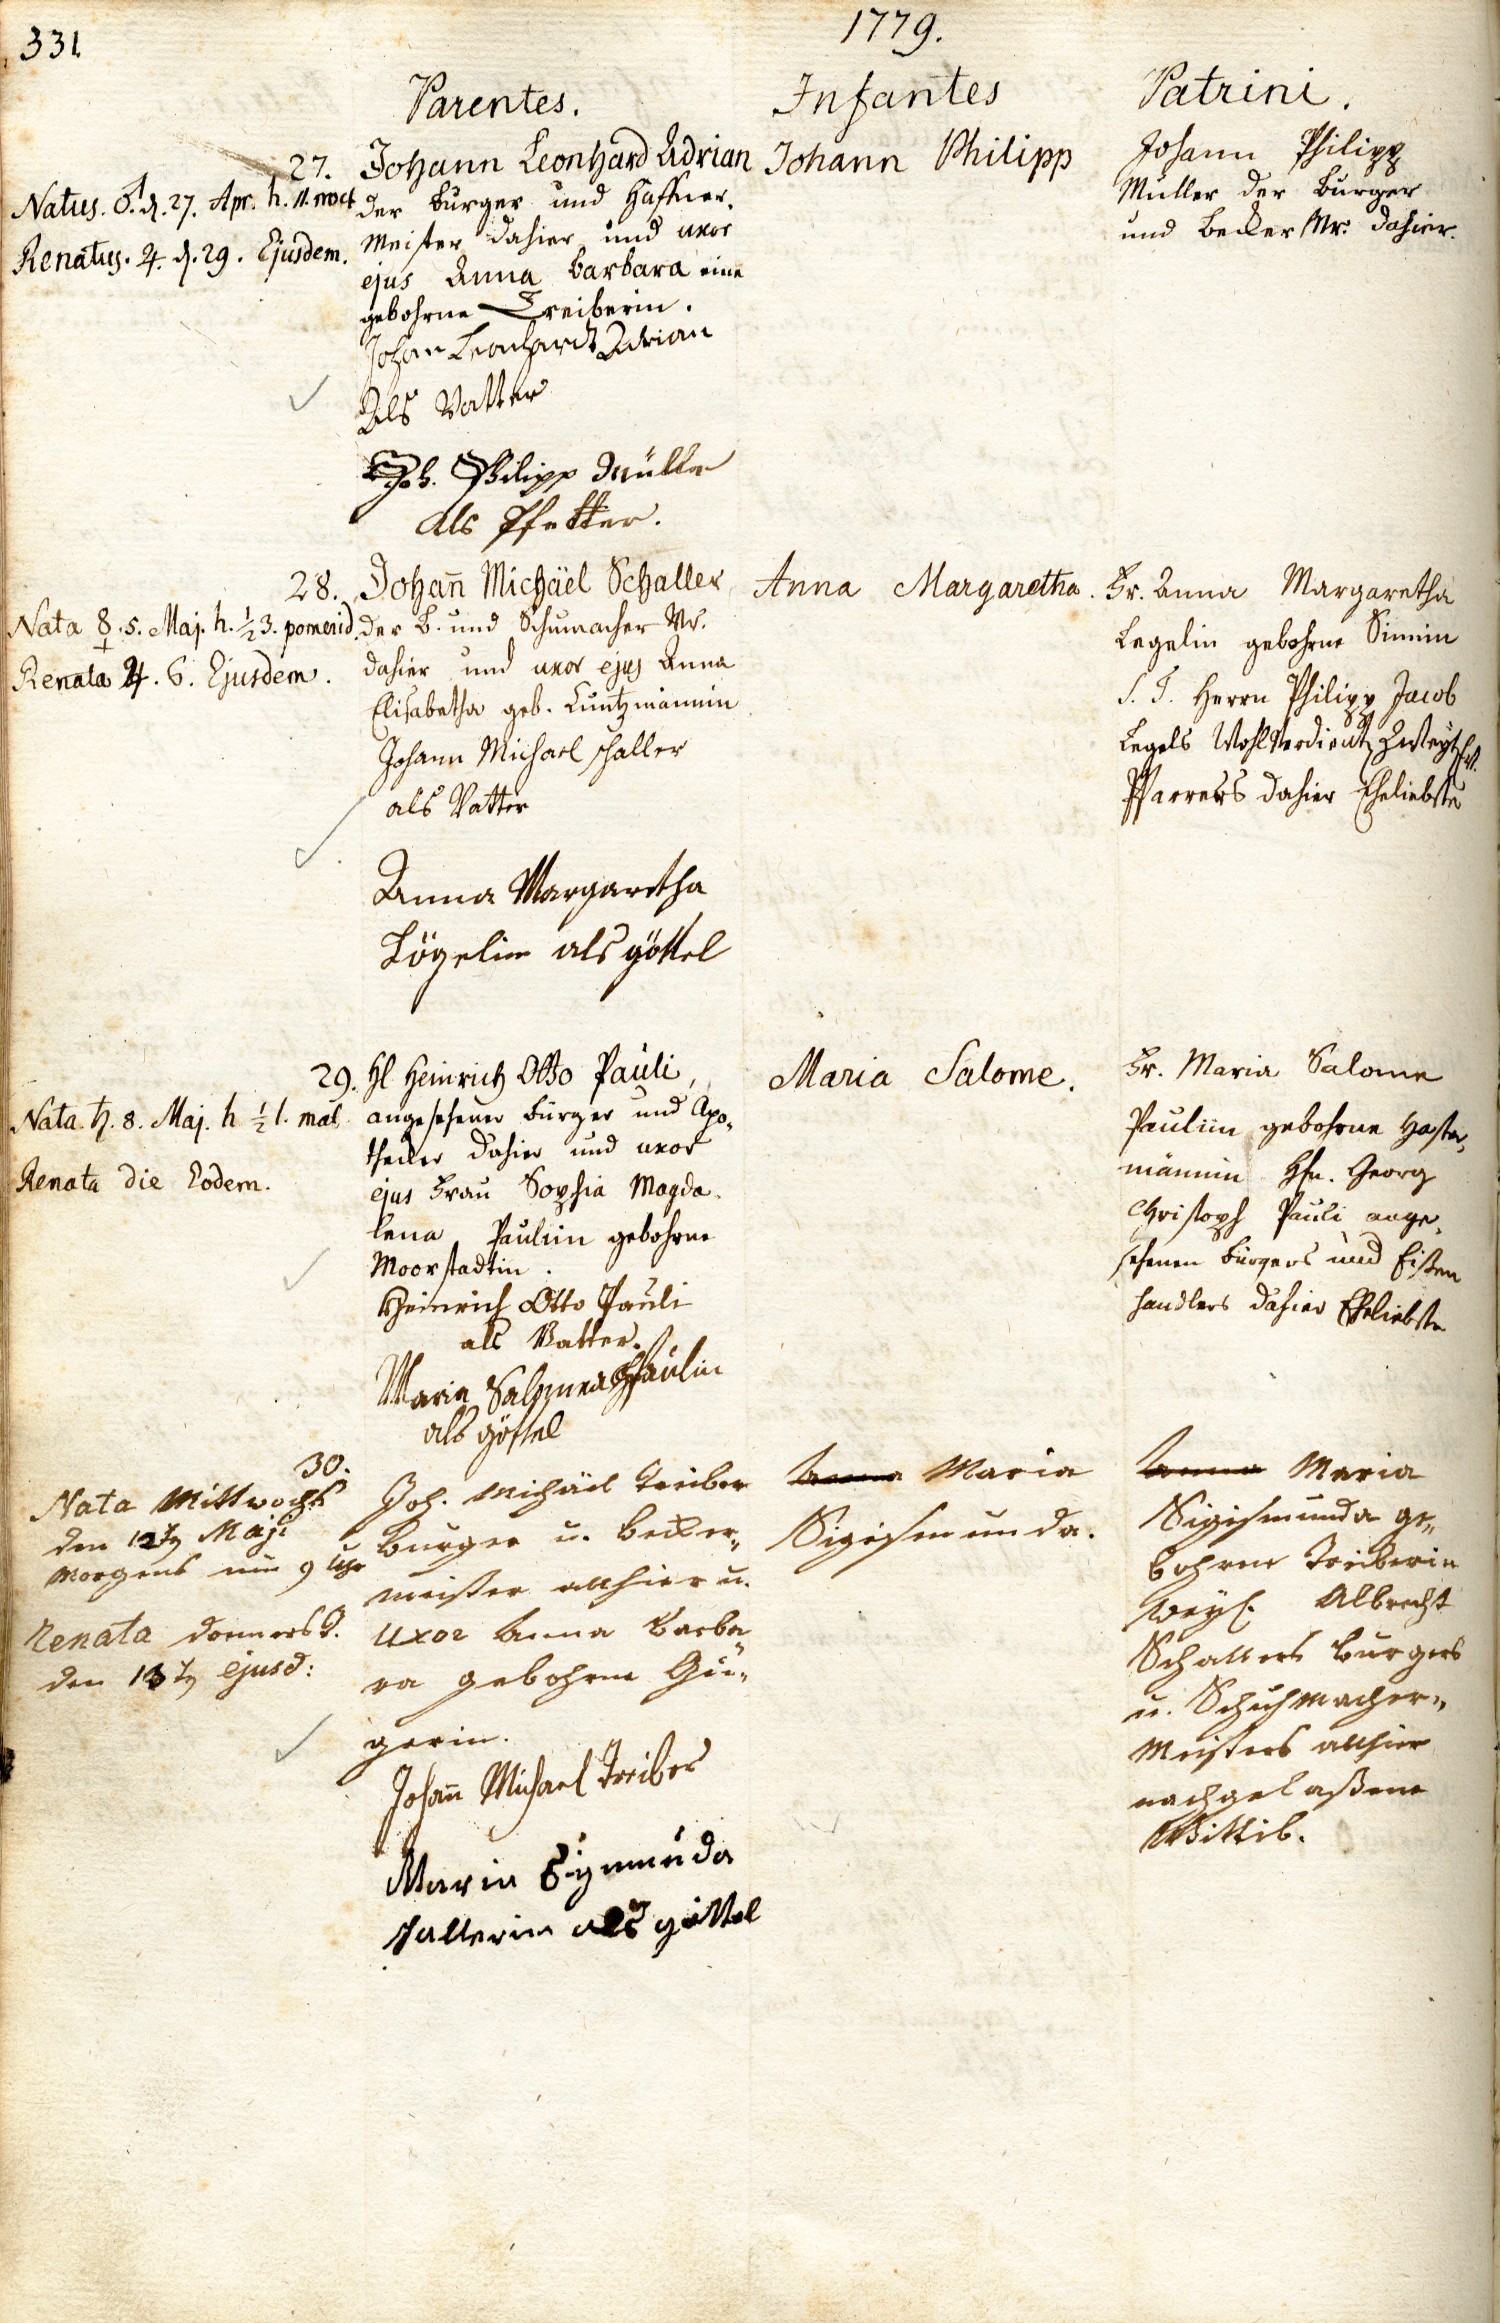 331.
1779.
Parentes.
Infantes
Patrini.
27.
Natus. ♂. d. 27. Apr. h. 11. noct
Renatus. ♃. d. 29. Ejusdem.
Johann Leonhard Adrian
der burger und Haffner.
Meister dahier und uxor
ejus Anna barbara eine
gebohrne Treiberin.
Johan Leonhardt Adrian
Als Vatter
Joh. Philipp Müller
als Pfetter.
Johann Philipp
Johann Philipp
Müller der burger
und becker Mr. dahier.
28.
Nata ☿. 5. Maj. h. ½ 3. pomerid.
Renata ♃. 6. Ejusdem.
Johañ Michäel Schaller
der b. und Schumacher Mr.
dahier und uxor ejus Anna
Elisabetha geb. Cuntzmännin
Johann Michael schaller
als Vatter
Anna Margaretha
Lögelin als göttel
Anna Margaretha.
Fr. Anna Margaretha
Legelin gebohrne Simin
S. T. Herrn Philipp Jacob
Legels Wohlverdient
Pfarrers dahier Eheliebste
29.
Nata ♄. 8. Maj. h ½ 1. mat.
Renata die Eodem.
Hl Heinrich Otto Pauli,
angesehener burger und Apo„
thecker dahier und uxor
ejus Frau Sophia Magda„
lena Paulin gebohrne
Moorstadtin.
Heinrich Otto Pauli
als Vatter.
Maria Salomea Paulin
als göttel
Maria Salome.
Fr. Maria Salome
Paulin gebohrne
männin Hn. Georg
Christoph Pauli ange„
sehenen burgers und Eißen
handlers dahier Eheliebste
30.
Nata Mittwochs
den 12ten Maji
Morgens um 9 Uhr
Renata donnerst.
den 13ten ejusd:
Joh. Michäel Treiber
burger u. becker„
meister allhier u.
Uxor Anna Barba„
ra gebohrne Gü„
gerin.
Johañ Michael Treiber
Maria Sigmunda
schallerin als göttel
Anna Maria
Sigismunda.
Anna Maria
Sigismunda ge„
bohrne Treiberin
weyl. Albrecht
Schallers burgers
u. Schuhmacher„
Meisters allhier
nachgelaßene
Wittib.